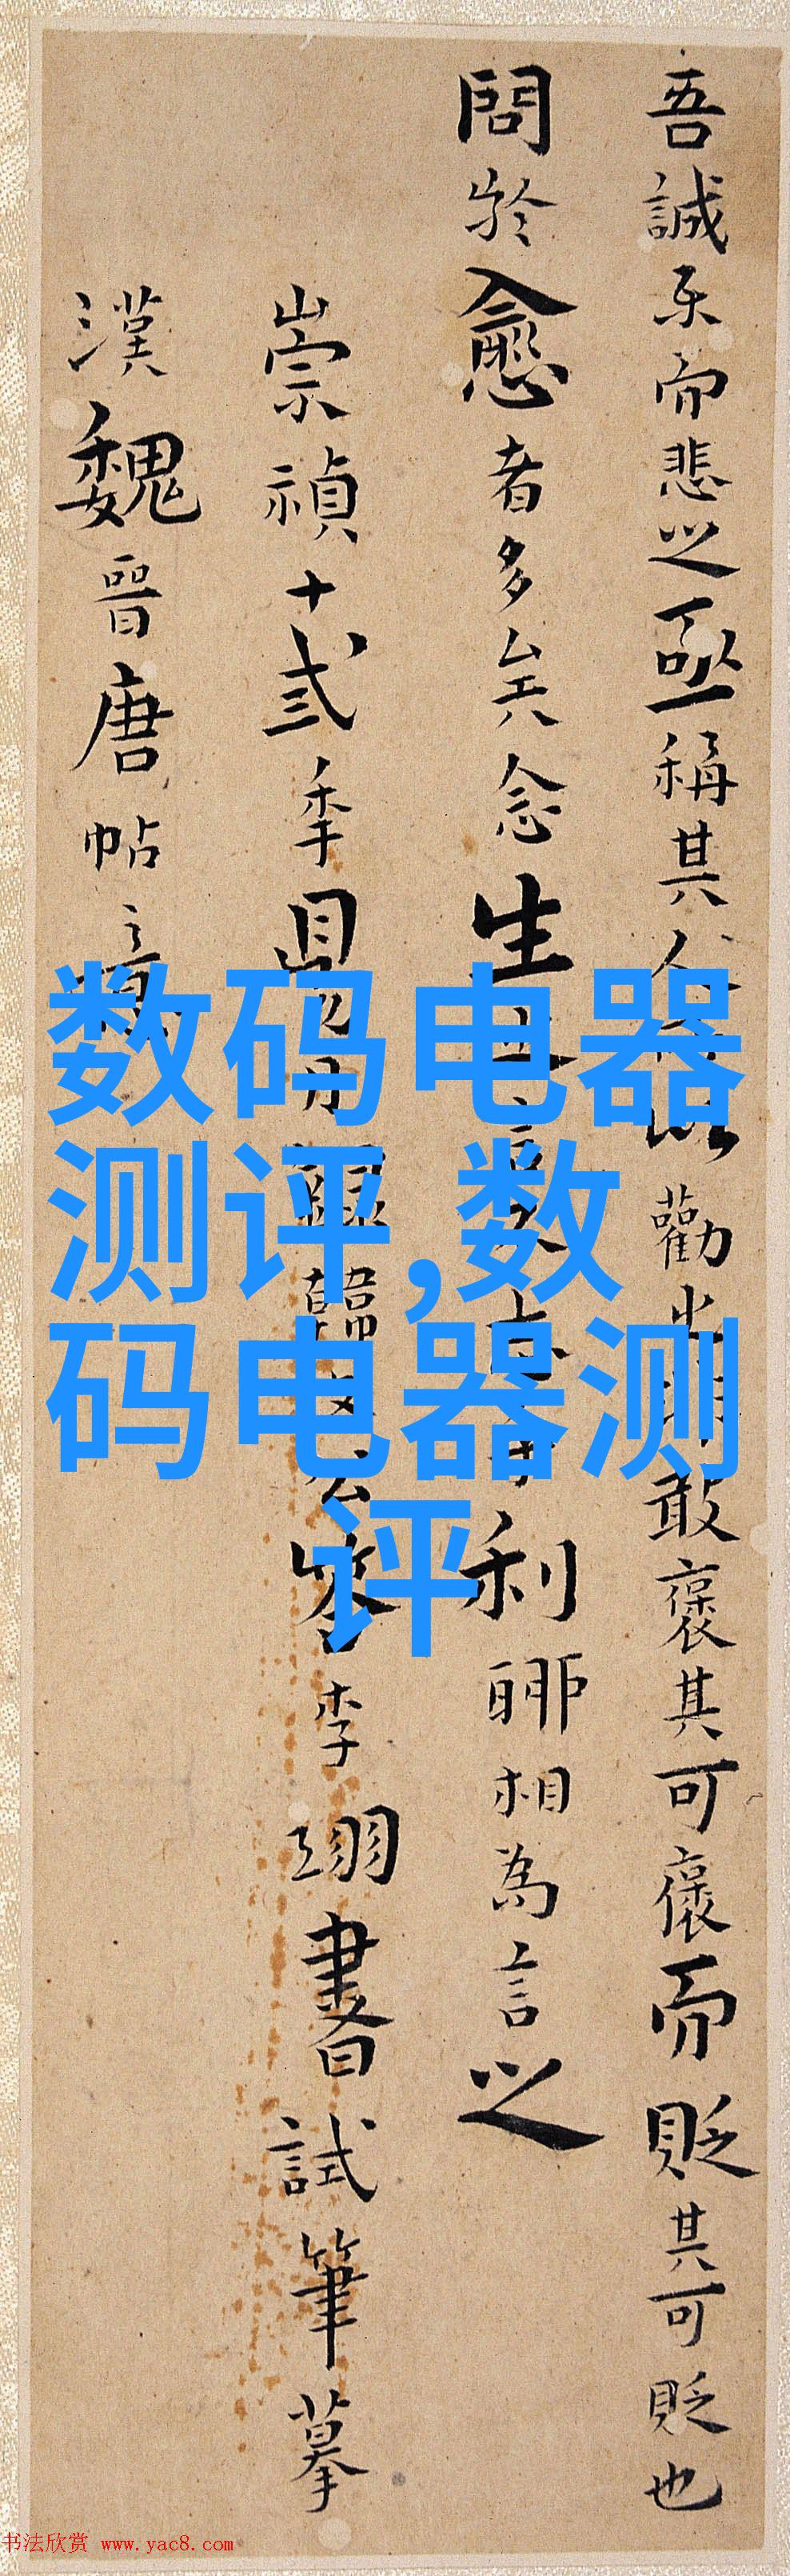 吾誠樂而悲之亟稱其人 以勸 敢褒其可褒而貶其可貶也
問於愈者多矣念生之言 利 相為言之
崇禎十弍季 韓文公 李翊書試筆摹
漢魏晉唐帖意
数码电器
测评,数
码电器测
评
书法欣赏 www.yac8.com